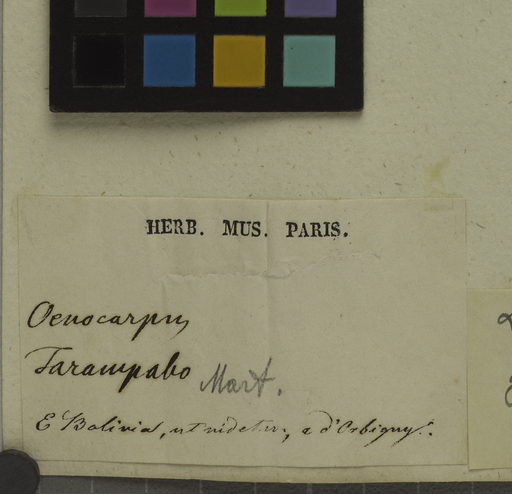 HERB. MUS. PARIS.
Oenocarpus
Tarampabo Mart.
E Bolivia, ut videtur, a d'Orbigny.